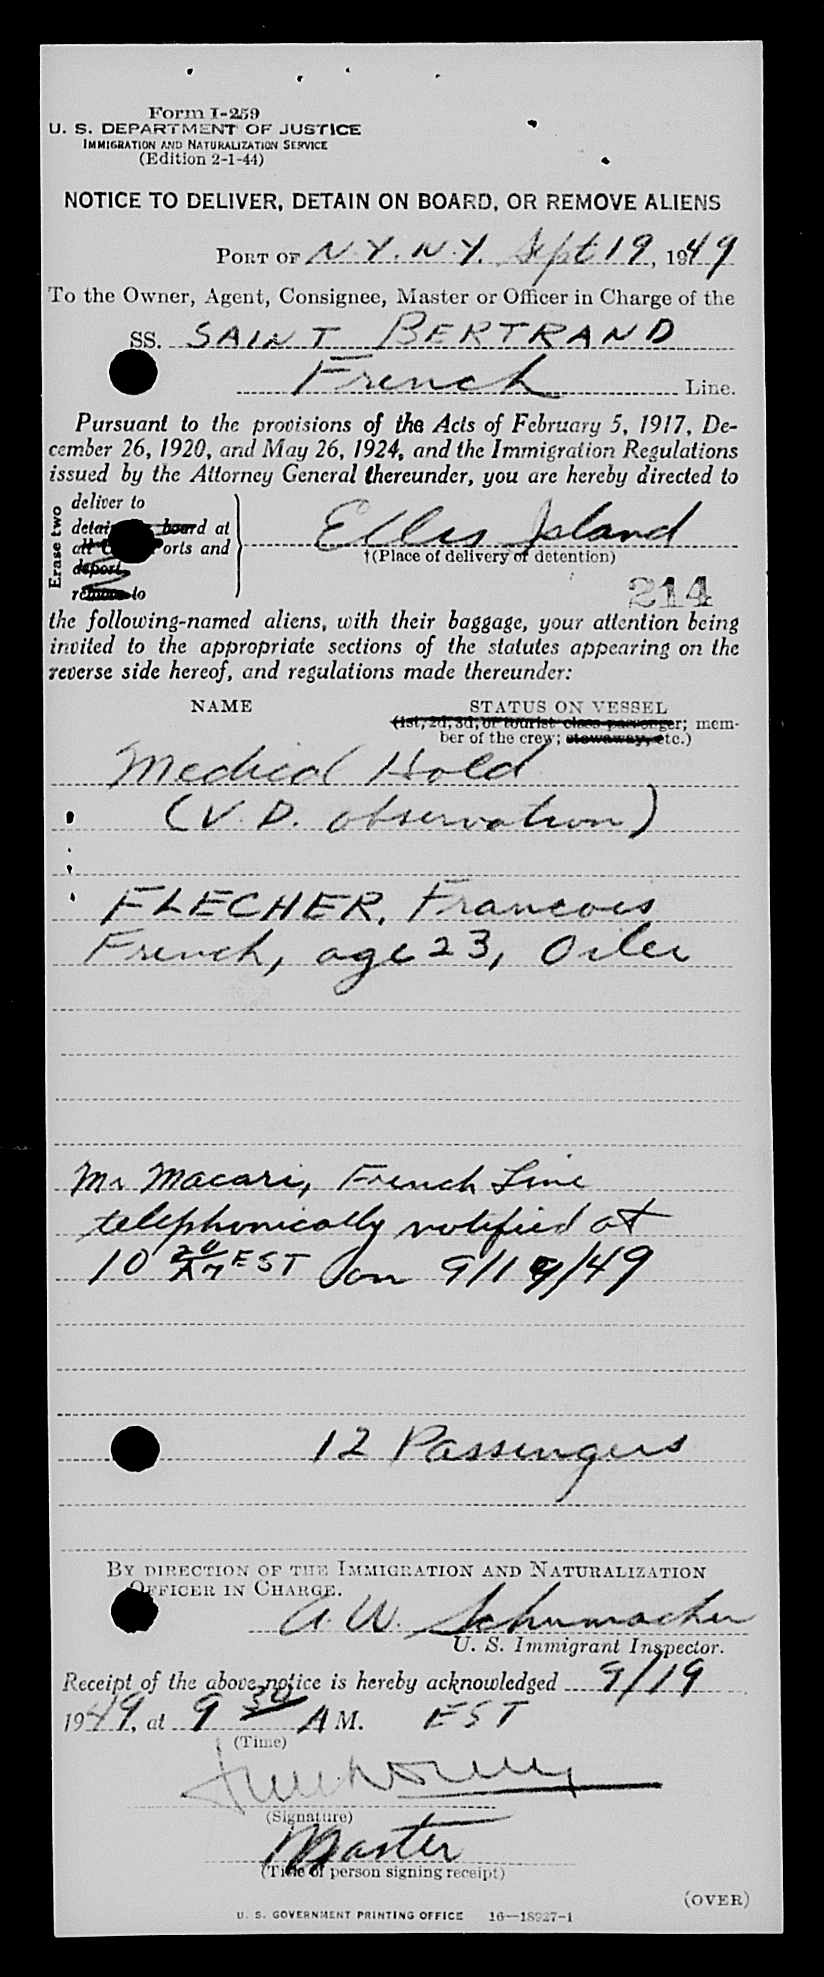 Form I-259
U. S. DEPARTMENT OF JUSTICE
IMMIGRATION AND NATURALIZATION SERVICE
(Edition 2-1-44)
NOTICE TO DELIVER, DETAIN ON BOARD, OR REMOVE ALIENS
PORT OF N.Y. N.Y. Sept 19, 1949
To the Owner, Agent, Consignee, Master or Officer in Charge of the
SS. SAINT BERTRAND
French Line.
Pursuant to the provisions of the Acts of February 5, 1917, De-
cember 26, 1920, and May 26, 1924, and the Immigration Regulations
issued by the Attorney General thereunder, you are hereby directed to
Erase two
deliver to
detain board at
all ports and
deport
remove to
Ellis Island
†(Place of delivery or detention)
214
the following-named aliens, with their baggage, your attention being
invited to the appropriate sections of the statutes appearing on the
reverse side hereof, and regulations made thereunder:
NAME STATUS ON VESSEL
(1st, 2d, 3d, or tourist class passenger; mem-
ber of the crew; stowaway, etc.)
Medical Hold
(V.D. observation)
FLECHER, Francois
French, age 23, Oiler
Mr Macari, French Line
telephonically notified at
10 20 EST on 9/19/49
12 Passengers
BY DIRECTION OF THE IMMIGRATION AND NATURALIZATION
OFFICER IN CHARGE.
A. W. Schumacher
U. S. Immigrant Inspector.
Receipt of the above notice is hereby acknowledged 9/19
1949, at 9 30 A M. EST
(Time)
(Signature)
Master
(Title of person signing receipt)
(OVER)
U. S. GOVERNMENT PRINTING OFFICE 16—18927-1